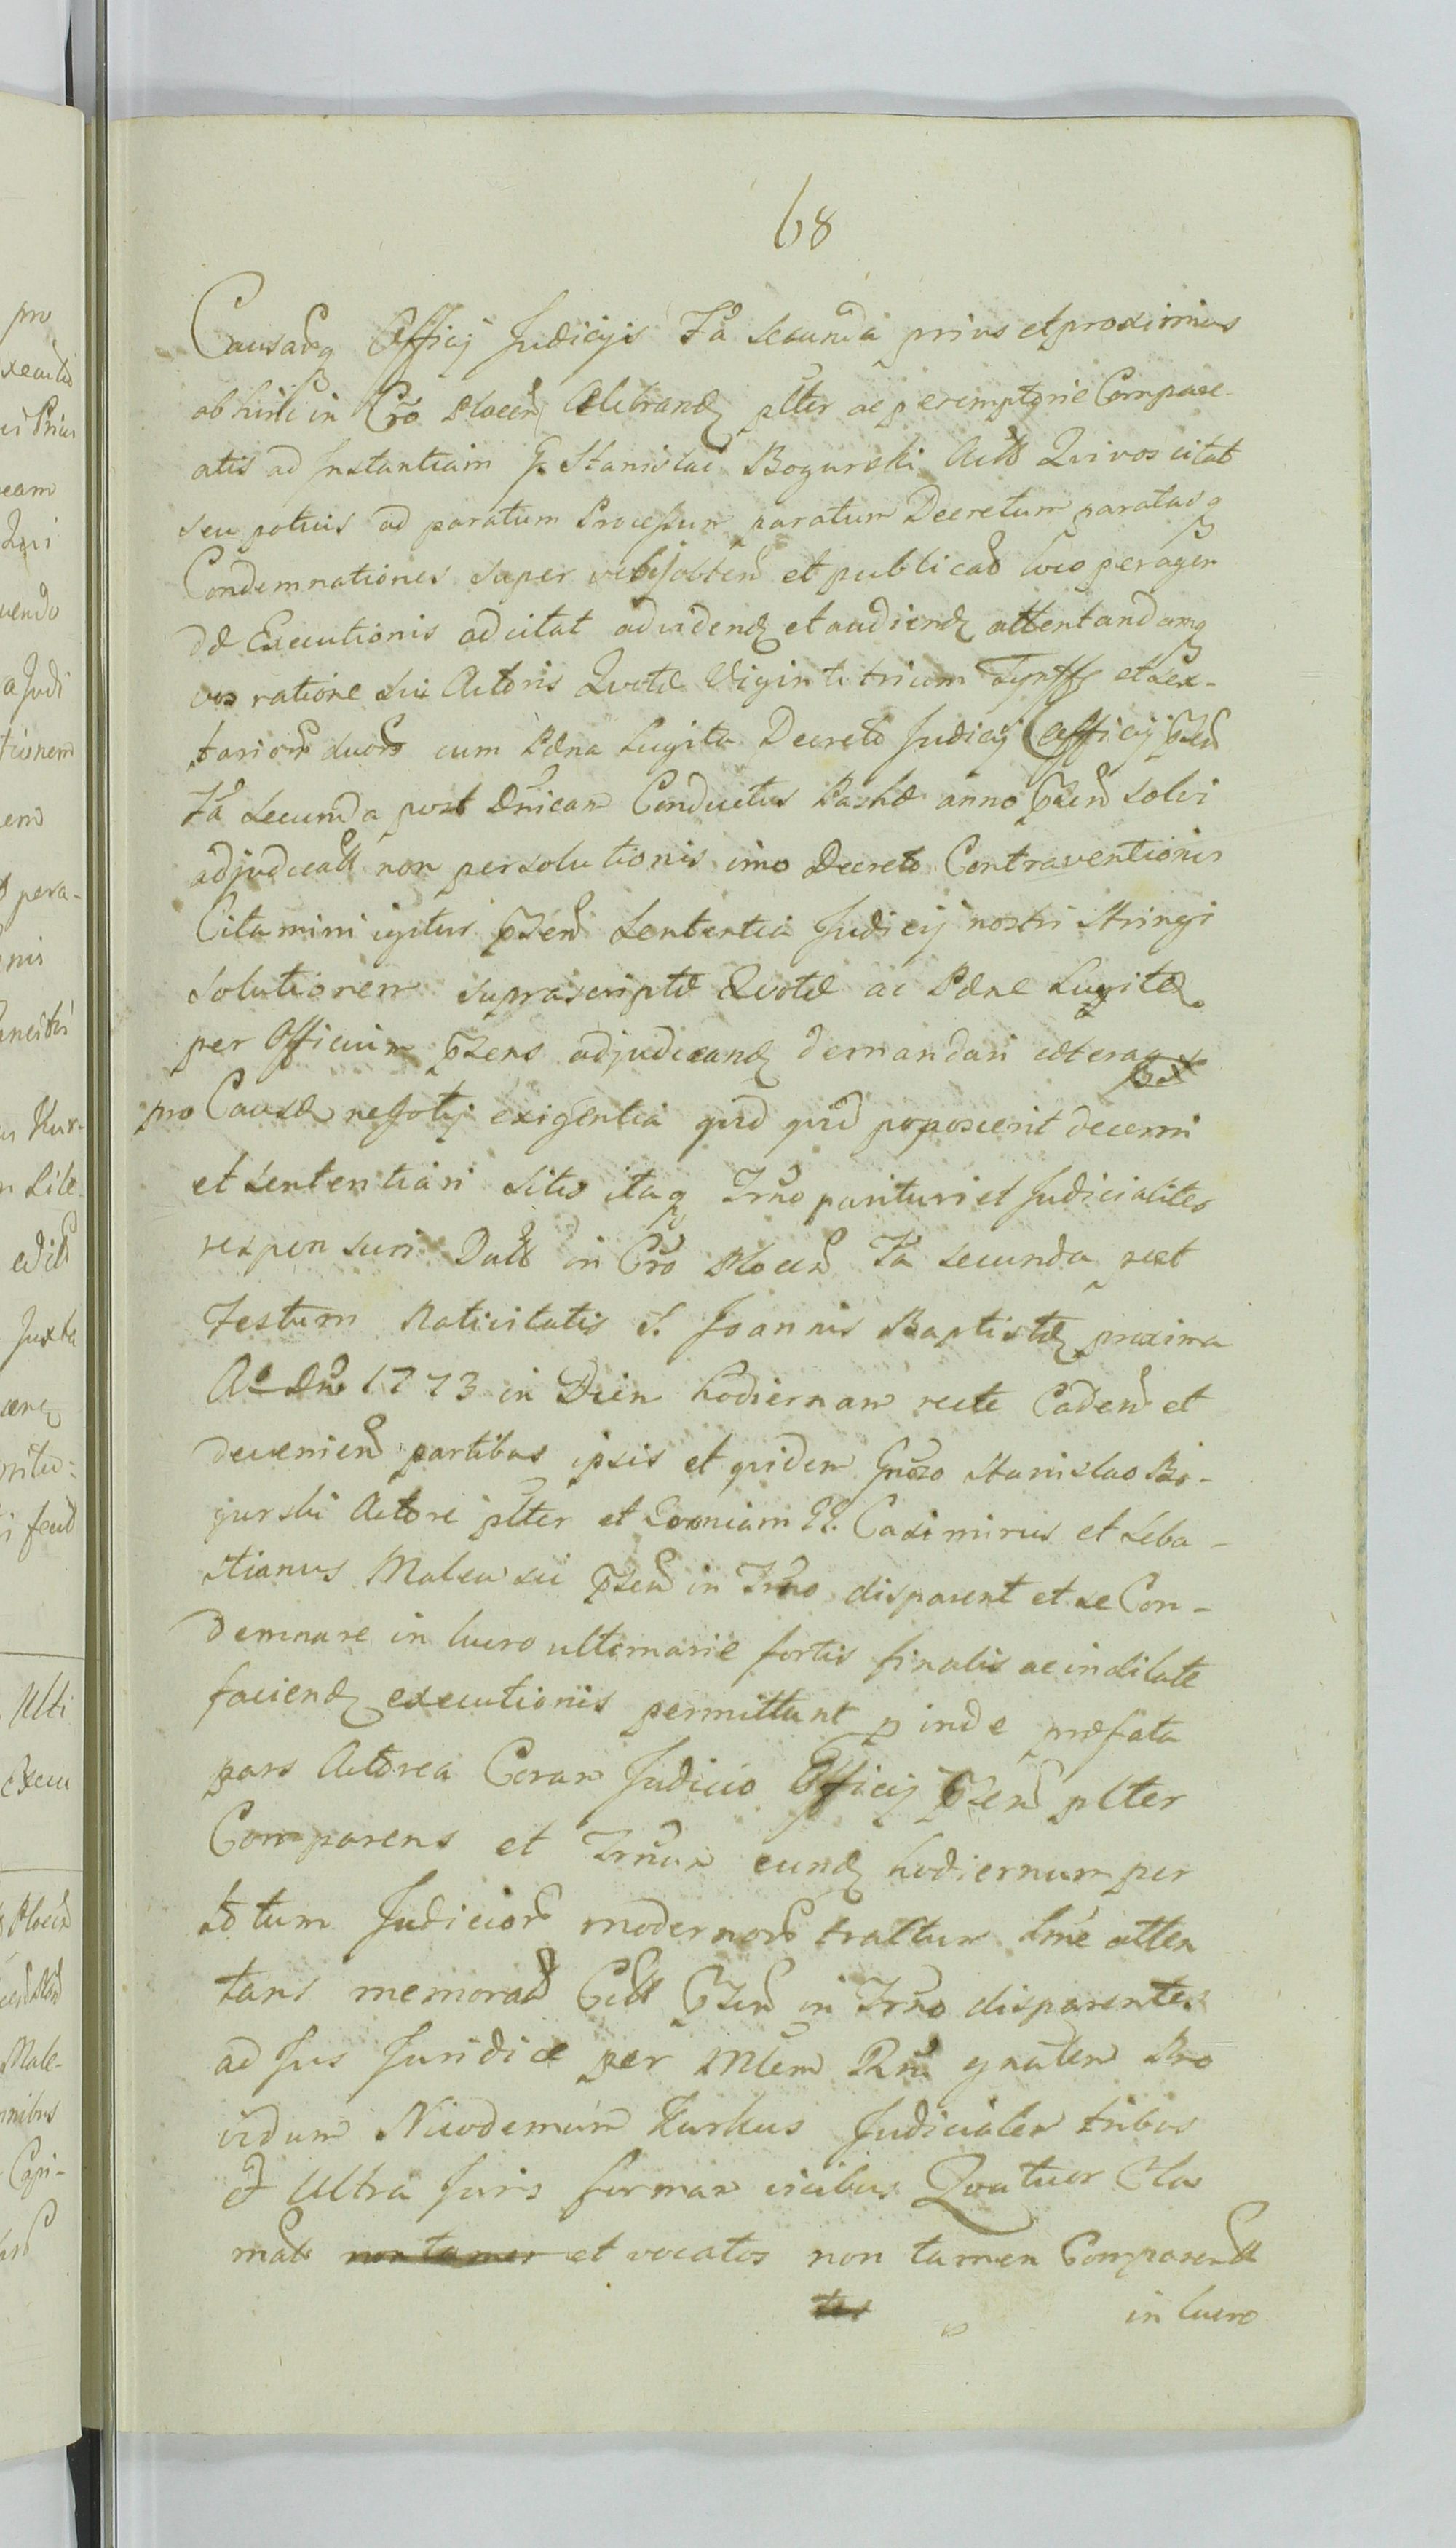 68
Causasq Officij Judicijs Fa Secunda prius et proximus
ab hinc in Cro Plocen Celebrand plter ac peremptorie Compare-
atis ad Instantiam G. Stanislai Bogurski Acts Qui vos citat
seu potius ad paratum Processum paratum Decretum paratasq
Condemnationes super vobis obten et publicad loco peragen
dæ Executionis adcitat ad vidend et audiend attentandamq
vos ratione sui Actoris Quotæ Viginti trium Tynff et Sex-
tarior duor cum Pæna Lugita Decreto Judicij Officij pzen
Fa Secunda post Dnicam Conductus Paschæ anno pzen solvi
adjudicatt non persolutionis imo Decreto Contraventionis
Citamini igitur pzen Sententia Judicij nostri Stringi
solutionem suprascriptæ Quotæ ac Pænæ Lugitæ
per Officium pzens adjudicand demandari cæteraq
pro Causæ negotij exigentia quid quid poposcerit decerni
et sententiari Sitis itaq Trno parituri et Judicialiter
responsuri Datt in Cro Plocen Fa secunda post
Festum Nativitatis S. Joannis Baptistæ proxima
Ao Dni 1773 in Diem hodiernam recte Caden et
devenien partibus ipsis et quidem Gnroso Stanislao Bo-
gurski Actore plter et Quoniam GG. Casimirus et Seba-
stianus Malewscii pzen in Trno disparent et se Con-
demnare in lucro ulternarie fortis finalis ac indilate
faciend executionis permittunt p inde præfata
pars Actorea Coram Judicio Officij pzen plter
Comparens et Trnum eund hodiernum per
totum Judicior modernor tractum Lme atten
tans memorat Citt pzen in Trno disparentes
ad Jus Juridice per Mlem Rni gnalem Pro
vidum Nicodemum Kurkus Judicialem tribus
et Ultra Juris formam vicibus Quatuor Cla
mats non tamen et vocatos non tamen Comparentt
tes in lucro